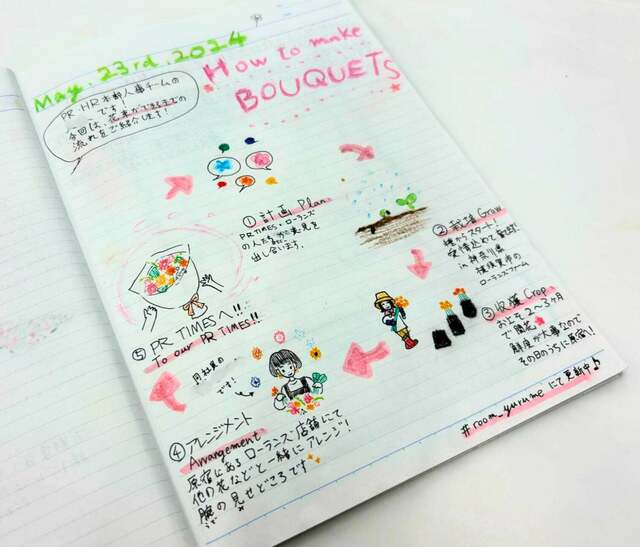 May. 23rd. 2024
How to make
BOUQUETS
PR・HR本部人事チームの
です！
今回は、花束ができるまでの
流れをご紹介します！
①計画 Plan
PR TIMES・ローランズ
の人たちが意見を
出し合います。
②栽培 Grow
種からスタート！
愛情込めて栽培
in 神奈川県
横須賀市の
ローランズファーム
③収穫 Crop
およそ2〜3ヶ月
で開花
鮮度が大事なので
その日のうちに原宿へ！
④アレンジメント
Arrangement
原宿にあるローランズ店舗にて
他の花などと一緒にアレンジ！
腕の見せどころです
⑤PR TIMESへ!!
To our PR TIMES!!
です！
#room_yurume にて更新中♪